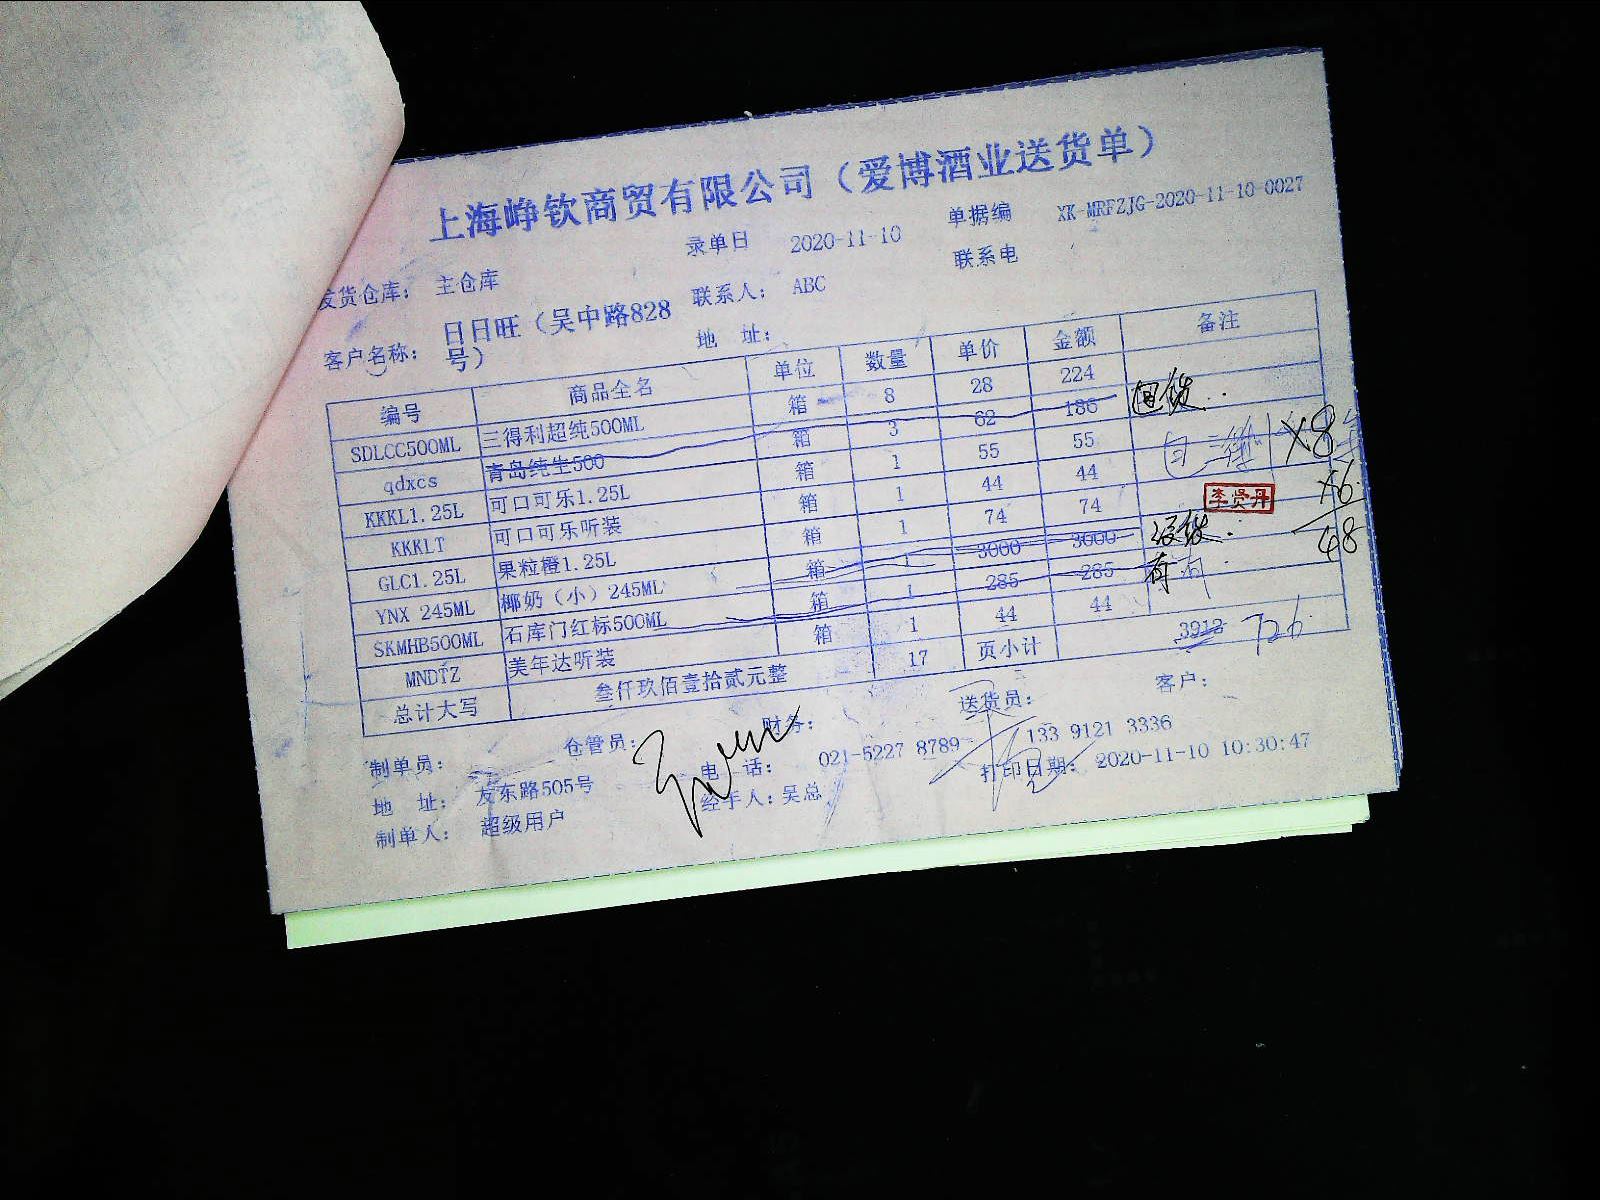 上海峥钦商贸有限公司（爱博酒业送货单）
录单日 2020-11-10 单据编 XK-MRFZJG-2020-11-10-0027
发货仓库： 主仓库 联系人： ABC 联系电
客户名称： 日日旺（吴中路828号） 地 址：
编号 商品全名 单位 数量 单价 金额 备注
SDLCC500ML 三得利超纯500ML 箱 8 28 224
qdxcs 青岛纯生500 箱 3 62 186 退货
KKKL1.25L 可口可乐1.25L 箱 1 55 55 X8
KKKLT 可口可乐听装 箱 1 44 44 X6
GLC1.25L 果粒橙1.25L 箱 1 74 74 李贤丹 48
YNX 245ML 椰奶（小）245ML 箱 1 3000 3000 退货
SKMHB500ML 石库门红标500ML 箱 1 285 285
MNDTZ 美年达听装 箱 1 44 44
总计大写 叁仟玖佰壹拾贰元整 17 页小计 3912 726
制单员： 仓管员： 财务： 送货员： 客户：
地 址： 友东路505号 电 话： 021-5227 8789 133 9121 3336
制单人： 超级用户 经手人：吴总 打印日期： 2020-11-10 10:30:47